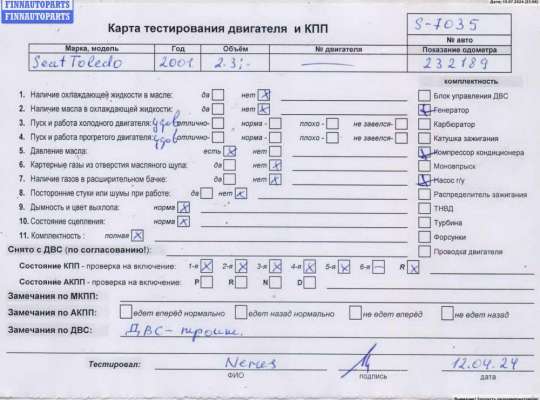 FINNAUTOPARTS
FINNAUTOPARTS
Карта тестирования двигателя и КПП
S-7035
№ авто
Марка, модель Год Объём № двигателя Показание одометра
Seat Toledo 2001 2.3i- 232189
комплектность
1. Наличие охлаждающей жидкости в масле: да нет x
Блок управления ДВС
2. Наличие масла в охлаждающей жидкости: да нет x
Генератор
3. Пуск и работа холодного двигателя: удов отлично- норма - плохо - не завелся-
Карбюратор
4. Пуск и работа прогретого двигателя: удов отлично- норма - плохо - не завелся-
Катушка зажигания
5. Давление масла: есть x нет
Компрессор кондиционера
6. Картерные газы из отверстия масляного щупа: да нет x
Моновпрыск
7. Наличие газов в расширительном бачке: да нет x
Насос г/у
8. Посторонние стуки или шумы при работе: да нет x
Распределитель зажигания
9. Дымность и цвет выхлопа: норма x
ТНВД
10. Состояние сцепления: норма x
Турбина
11. Комплектность : полная x
Форсунки
Снято с ДВС (по согласованию!):
Проводка двигателя
Состояние КПП - проверка на включение: 1-я x 2-я x 3-я x 4-я x 5-я x 6-я — R x
Состояние АКПП - проверка на включение: P R N D
Замечания по МКПП:
Замечания по АКПП: едет вперёд нормально едет назад нормально не едет вперёд не едет назад
Замечания по ДВС: ДВС - троит.
Тестировал: 12.04.24
ФИО подпись дата